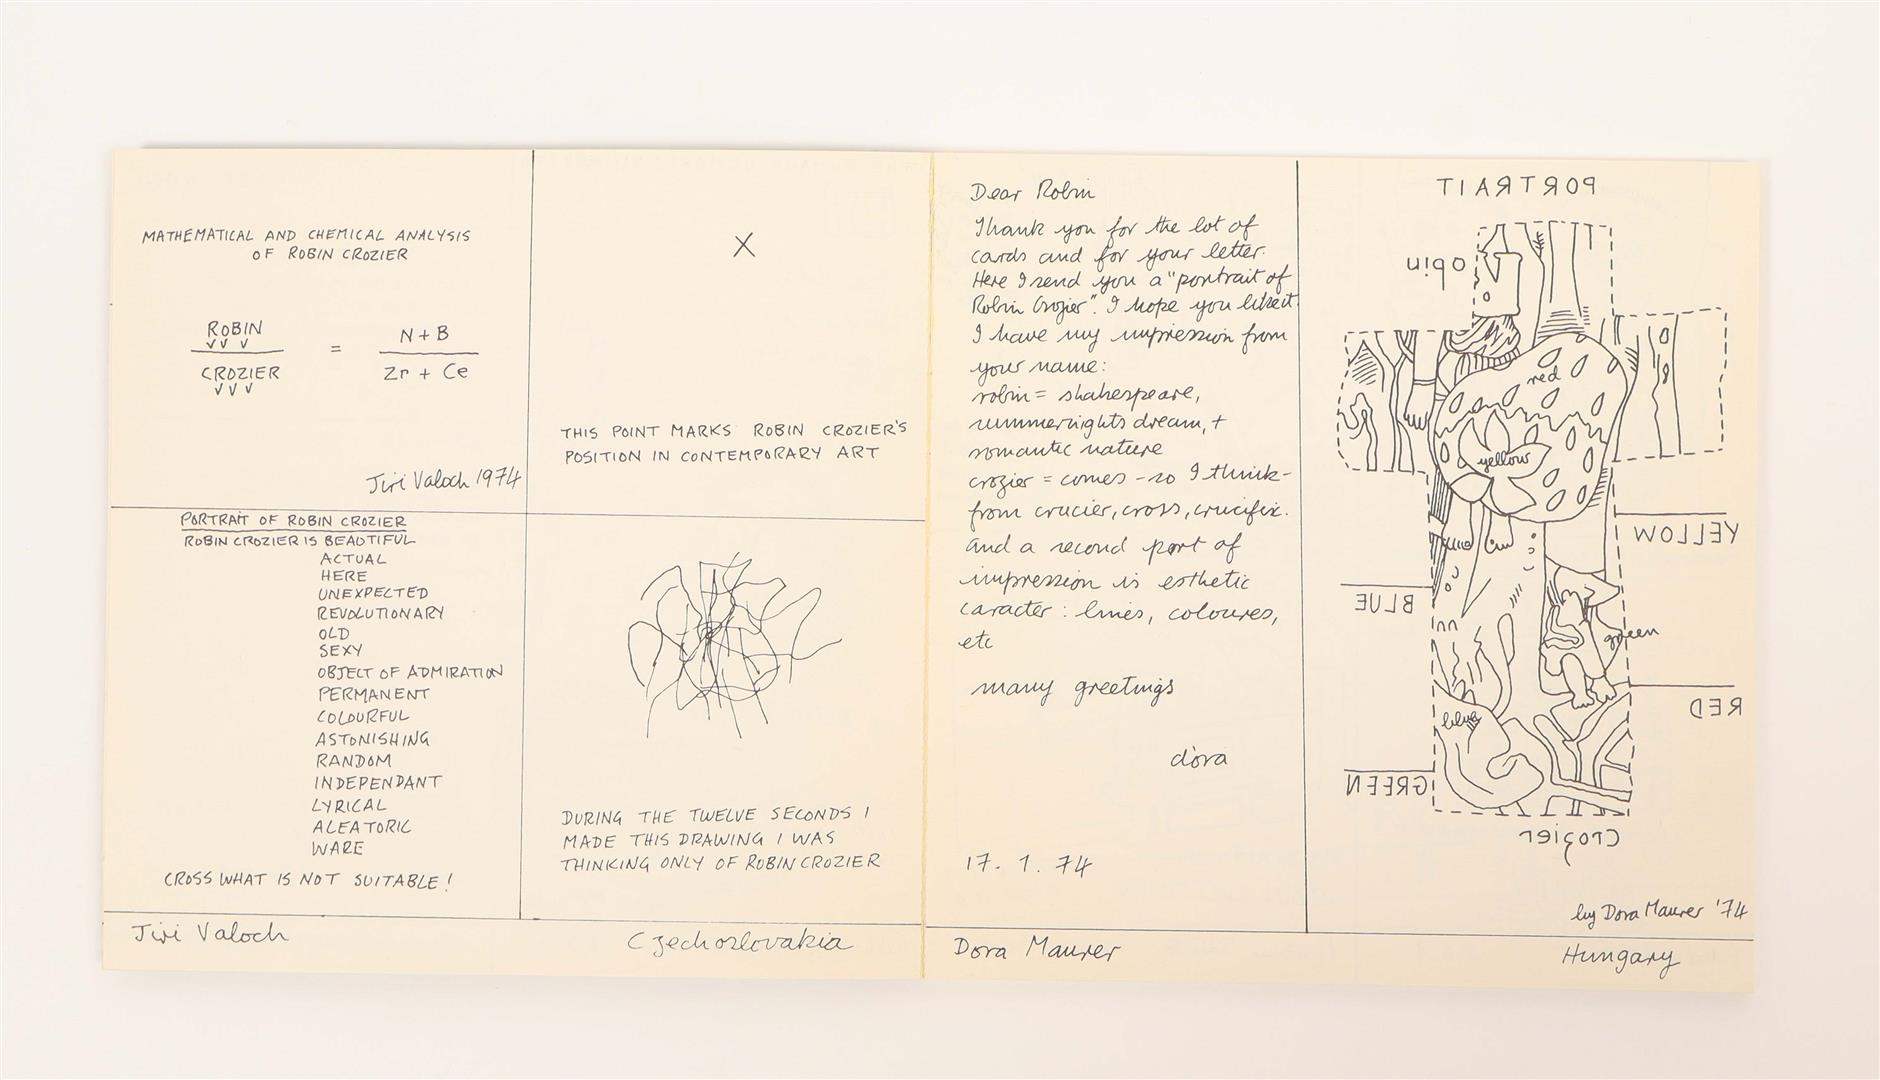 MATHEMATICAL AND CHEMICAL ANALYSIS
OF ROBIN CROZIER
ROBIN
CROZIER
=
N + B
Zr + Ce
Jiri Valoch 1974
X
THIS POINT MARKS ROBIN CROZIER'S
POSITION IN CONTEMPORARY ART
PORTRAIT OF ROBIN CROZIER
ROBIN CROZIER IS BEAUTIFUL
ACTUAL
HERE
UNEXPECTED
REVOLUTIONARY
OLD
SEXY
OBJECT OF ADMIRATION
PERMANENT
COLOURFUL
ASTONISHING
RANDOM
INDEPENDANT
LYRICAL
ALEATORIC
WARE
CROSS WHAT IS NOT SUITABLE!
DURING THE TWELVE SECONDS I
MADE THIS DRAWING I WAS
THINKING ONLY OF ROBIN CROZIER
Jiri Valoch
Czechoslovakia
Dear Robin
Thank you for the lot of
cards and for your letter.
Here I send you a "portrait of
Robin Crozier". I hope you like it.
I have my impression from
your name:
robin = shakespeare,
summernights dream, +
romantic nature
crozier = comes - so I think -
from crucier, cross, crucifix.
and a second part of
impression is esthetic
caracter: lines, coloures,
etc
many greetings
dóra
17. 1. 74
PORTRAIT
obin
red
yellow
YELLOW
BLUE
green
RED
blue
GREEN
Crozier
by Dora Maurer '74
Dora Maurer
Hungary